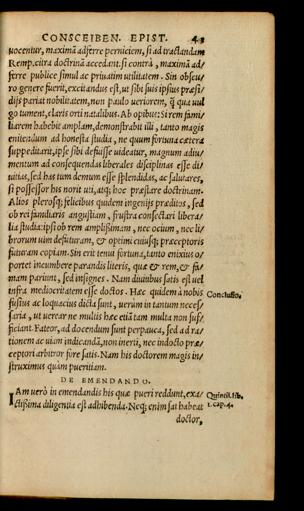 CONSCEIBEN. EPIST. 43
uocentur, maximā adferre perniciem, si ad tractandam
Remp. citra doctrinā accedant. si contrà, maximā ad-
ferre publice simul ac priuatim utilitatem. Sin obscu-
ro genere fuerit, excitandus est, ut sibi suis ipsius præsi-
dijs pariat nobilitatem, non paulo ueriorem, q̃ quā uul
go tument, claris orti natalibus. Ab opibus: Si rem fami-
liarem habebit amplam, demonstrabit illi, tanto magis
enitendum ad honesta studia, ne quum fortuna cætera
suppeditarit, ipse sibi defuisse uideatur, magnum adiu-
mentum ad consequendas liberales disciplinas esse di-
uitias, sed has tum demum esse splendidas, ac salutares,
si possessor his norit uti, atq; hoc præstare doctrinam.
Alios plerosq; felicibus quidem ingenijs præditos, sed
ob rei familiaris angustiam, frustra consectari libera-
lia studia: ipsi ob rem amplissimam, nec ocium, nec li-
brorum uim defuturam, & optimi cuiusq; præceptoris
futuram copiam. Sin erit tenui fortuna, tanto enixius o-
portet incumbere parandis literis, quæ & rem, & fa-
mam pariunt, sed insignes. Nam diuitibus satis est uel
infra mediocritatem esse doctos. Hæc quidem à nobis
fusius ac loquacius dicta sunt, uerùm in tantum neces-
saria, ut uerear ne multis hæc etiā tam multa non suf-
ficiant. Fateor, ad docendum sunt perpauca, sed ad ra-
tionem ac uiam indicandā, non inerti, nec indocto præ-
ceptori arbitror fore satis. Nam his doctorem magis in-
struximus quàm pueritiam.
Conclusio.
DE EMENDANDO.
IAm uerò in emendandis his quæ pueri reddunt, exa-
ctissima diligentia est adhibenda. Neq; enim sat habeat
Quintil. lib.
1. cap. 4.
doctor,